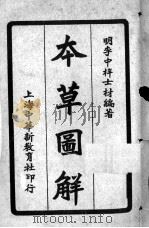 明李中梓士材編著
本草圖解
上海中華新敎育社印行